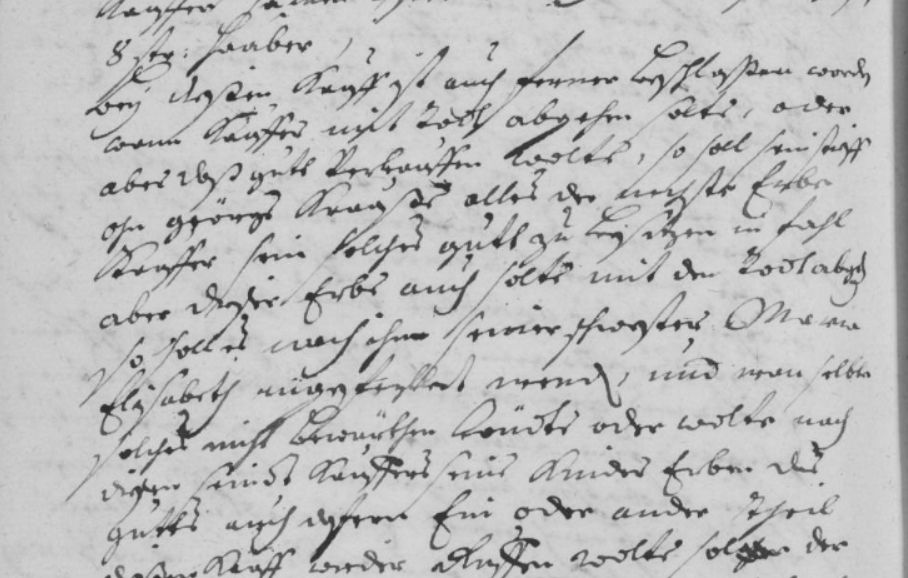 Kauffer
8 str: Haaber,
bey diesen Kauff ist auch ferner beschlossen worden
wann Kauffer mit Todt abgehen solte, oder
aber daß guth Verkauffen wolte, so soll sein
georgs alles der nechste Erbe
Kauffer sein solches guth zu besitzen in fahl
aber dieser Erbe auch solte mit den Todt abgeh
so soll es nach ihme seiner schwester Maria
Elisabeth werden, und wan selbe
solches nicht bewürthen köndte oder wolte nach
diesen seindt Kauffers seine Kinder Erben des
gutts auch dofern Ein oder ander Theil
diesen Kauff wieder wolte der